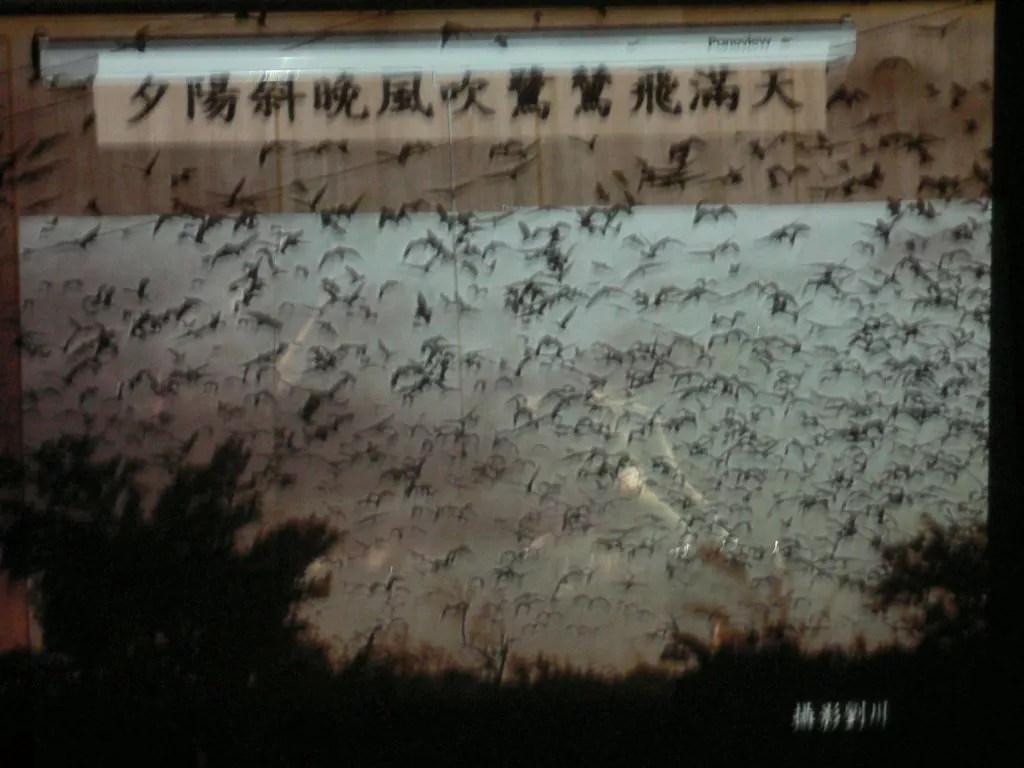 Panoview
夕陽斜晚風吹鷺鷥飛滿天
攝影劉川